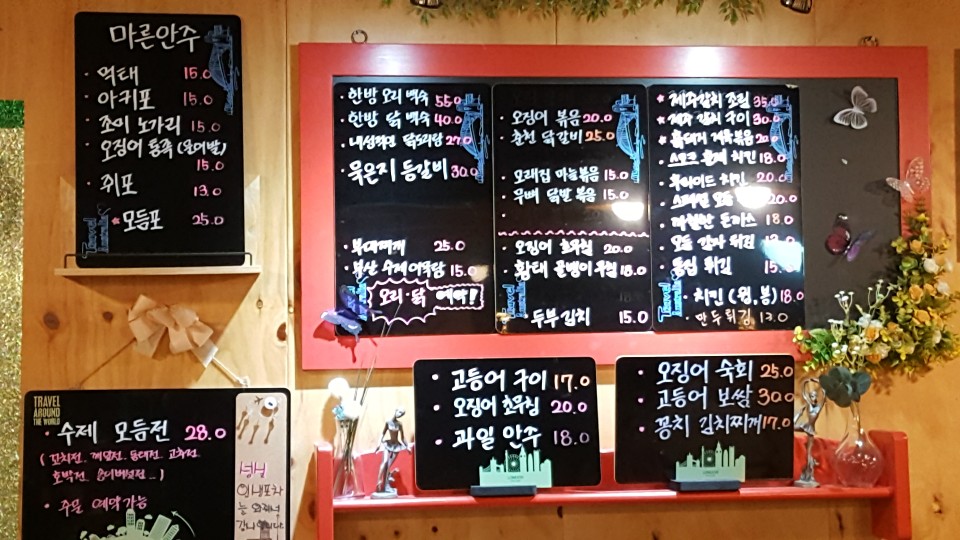 마른안주
· 먹태 15.0
· 아귀포 15.0
· 조미 노가리 15.0
· 오징어 통족 (문어발)
15.0
· 쥐포 13.0
모듬포 25.0
· 한방 오리 백숙 55.0
· 한방 닭 백숙 40.0
닭도리탕 27.0
· 묵은지 등갈비 30.0
· 부대찌개 25.0
· 부산 수제어묵탕 15.0
오리·닭 예약!
· 오징어 볶음 20.0
· 춘천 닭갈비 25.0
· 모래집 마늘볶음 15.0
· 무뼈 닭발 볶음 15.0
· 오징어 초무침 20.0
· 황태 골뱅이무침 18.0
· 두부김치 15.0
제주갈치 조림 35.0
제주 갈치 구이 30.0
흑돼지 제육볶음 20.0
스모크 훈제 치킨 18.0
· 후라이드 치킨 20.0
스페셜 모듬 20.0
돈까스 18.0
모듬 감자 튀김
튀김 15.
· 치킨 (윙, 봉) 18.0
· 만두튀김 13.0
TRAVEL
AROUND
THE WORLD
· 수제 모듬전 28.0
( 꼬치전, 깻잎전, 동태전, 고추전
호박전, 송이버섯전...)
· 주문 예약가능
· 고등어 구이 17.0
· 오징어 초무침 20.0
· 과일 안주 18.0
· 오징어 숙회 25.0
· 고등어 보쌈 30.0
· 꽁치 김치찌개 17.0